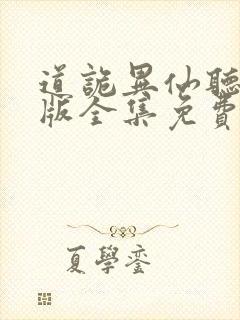 道詭異仙聽
版全集免費
夏學鑾